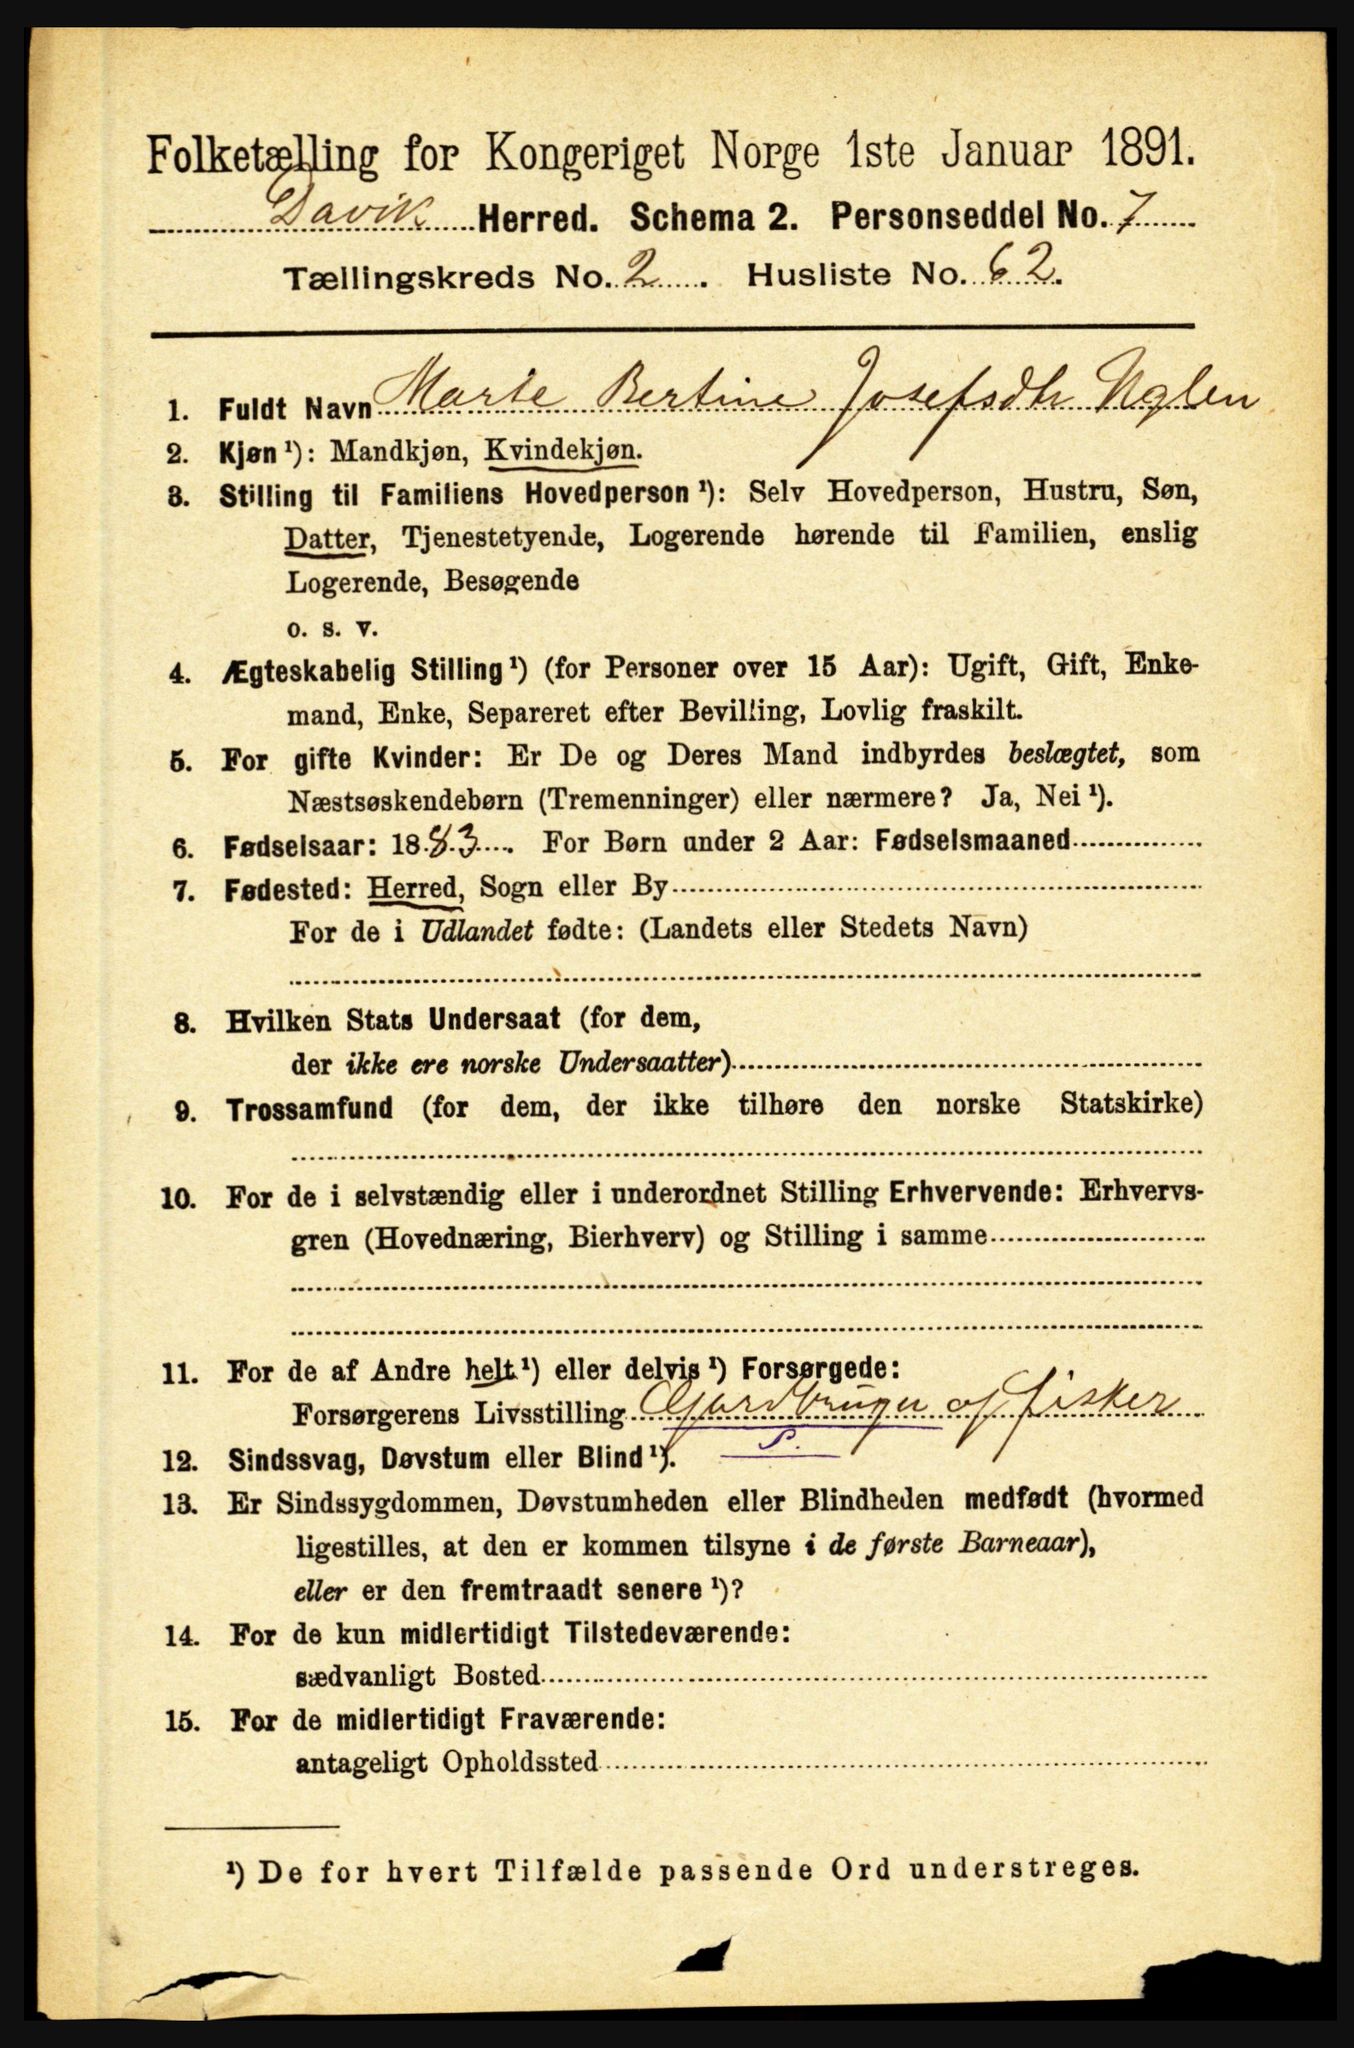 Folketælling for Kongeriget Norge 1ste Januar 1891.
Davik Herred. Schema 2. Personseddel No. 7
Tællingskreds No. 2. Husliste No. 62.
1. Fuldt Navn Marte Bertine Josefsdtr Uglen
2. Kjøn ¹): Mandkjøn, Kvindekjøn.
3. Stilling til Familiens Hovedperson ¹): Selv Hovedperson, Hustru, Søn,
Datter, Tjenestetyende, Logerende hørende til Familien, enslig
Logerende, Besøgende
o. s. v.
4. Ægteskabelig Stilling ¹) (for Personer over 15 Aar): Ugift, Gift, Enke-
mand, Enke, Separeret efter Bevilling, Lovlig fraskilt.
5. For gifte Kvinder: Er De og Deres Mand indbyrdes beslægtet, som
Næstsøskendebørn (Tremenninger) eller nærmere? Ja, Nei ¹).
6. Fødselsaar: 1883. For Børn under 2 Aar: Fødselsmaaned
7. Fødested: Herred, Sogn eller By
For de i Udlandet fødte: (Landets eller Stedets Navn)
8. Hvilken Stats Undersaat (for dem,
der ikke ere norske Undersaatter)
9. Trossamfund (for dem, der ikke tilhøre den norske Statskirke)
10. For de i selvstændig eller i underordnet Stilling Erhvervende: Erhvervs-
gren (Hovednæring, Bierhverv) og Stilling i samme
11. For de af Andre helt ¹) eller delvis ¹) Forsørgede:
Forsørgerens Livsstilling Gardbruger og fisker
S.
12. Sindssvag, Døvstum eller Blind ¹).
13. Er Sindssygdommen, Døvstumheden eller Blindheden medfødt (hvormed
ligestilles, at den er kommen tilsyne i de første Barneaar),
eller er den fremtraadt senere ¹)?
14. For de kun midlertidigt Tilstedeværende:
sædvanligt Bosted
15. For de midlertidigt Fraværende:
antageligt Opholdssted
¹) De for hvert Tilfælde passende Ord understreges.